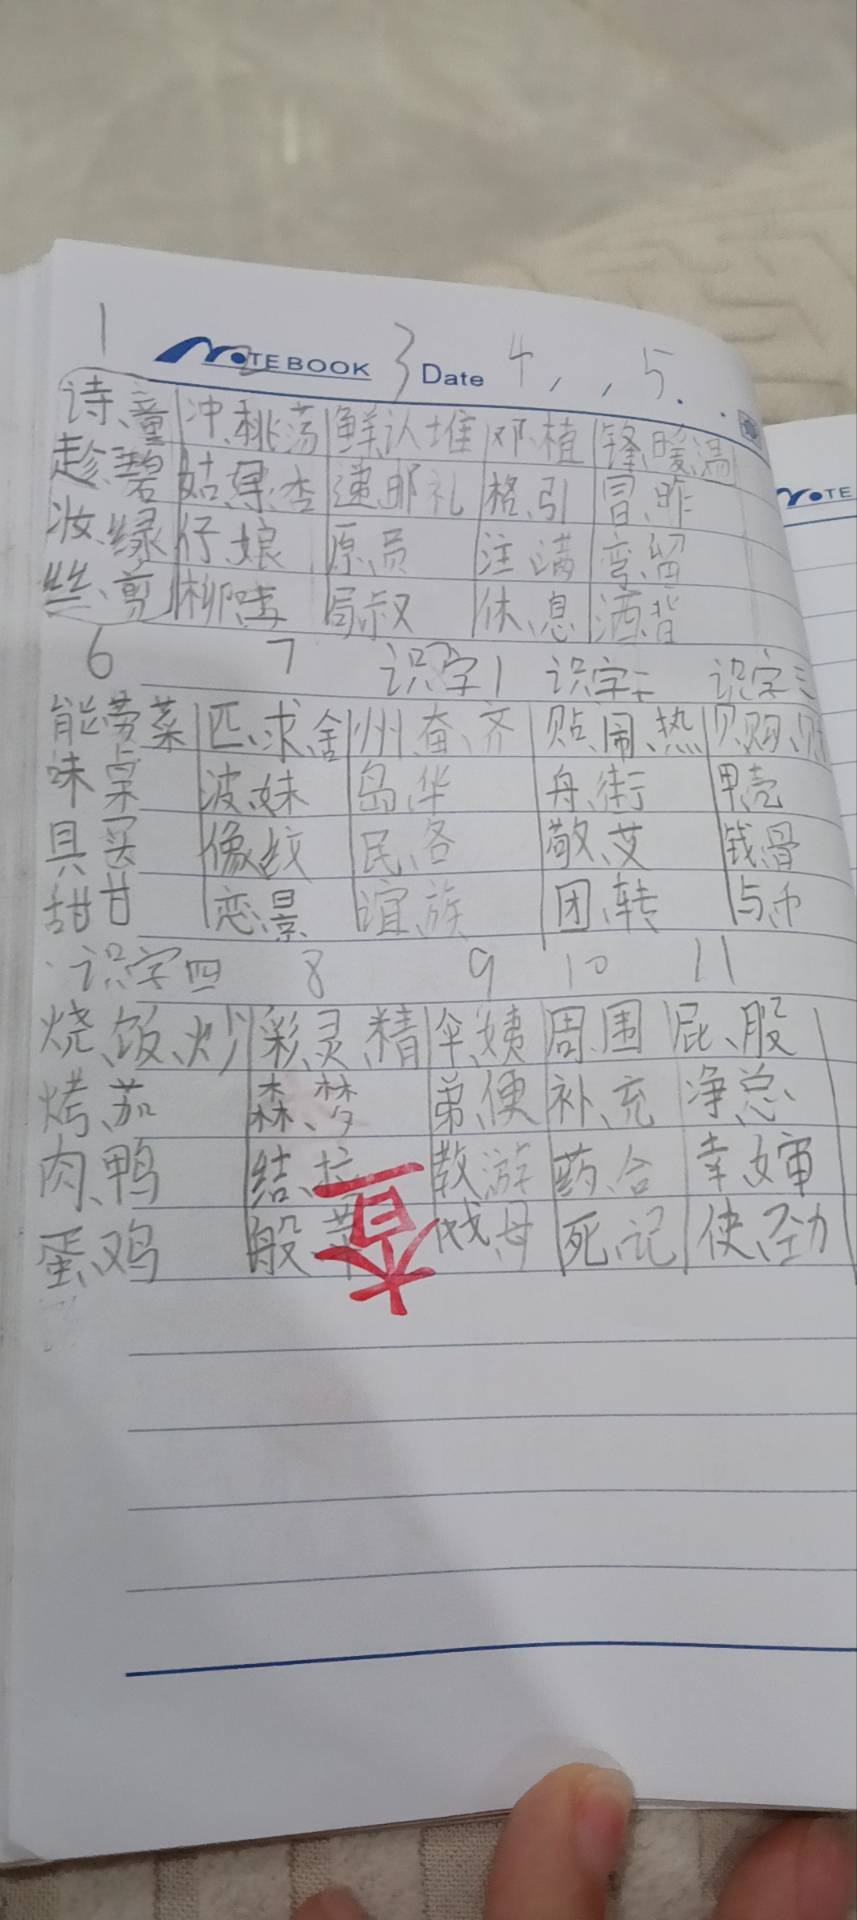 1 NOTEBOOK 3 Date 4, , 5. .
诗、童 冲、桃、荡 鲜、认、堆 邓、植 锋、暖、温
趁、碧 姑、果、杏 递、邮、礼 格、引 冒、昨
妆、绿 仔、娘 原、员 注、满 弯、留
丝、剪 柳、 局、叔 休、息 洒、背
NOTE
6 7 识字1 识字二 识字三
能、劳、菜 匹、求、舍 州、奋、齐 贴、闹、热 贝、购、
味、桌 波、妹 岛、华 舟、街 甲、壳
具、买 像、纹 民、各 敬、艾 钱、骨
甜、甘 恋、景 谊、族 团、转 与、币
识字四 8 9 10 11
烧、饭、炒 彩、灵、精 伞、姨 周、围 屁、股
烤、茄 森、梦 弟、便 补、充 净、总
肉、鸭 结、 教、游 药、合 幸、
蛋、鸡 般、 母 死、记 使、劲
查